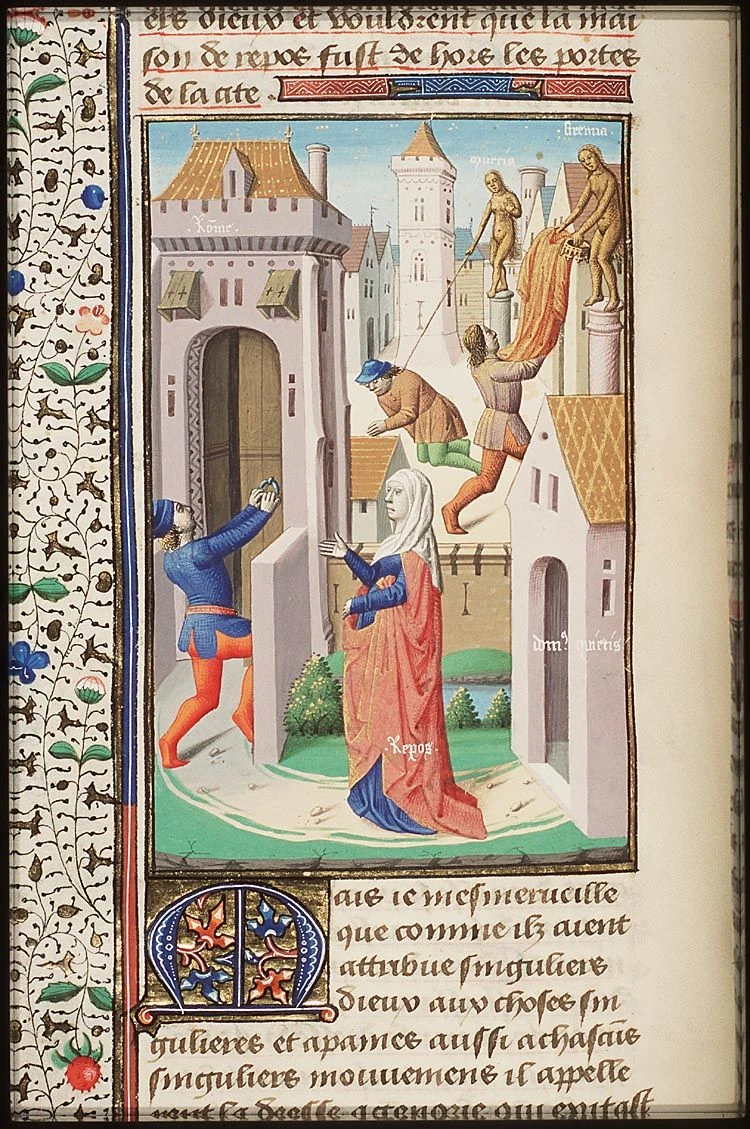 els dieux et vouldrent que la mai
son de repos fust de hors les portes
de la cite.
murcia
Rome.
Repos.
Mais ie mesmerueille
que comme ilz aient
attribue singuliers
dieux aux choses sin
gulieres et apames aussi a chascuns
singuliers mouuemens il appelle